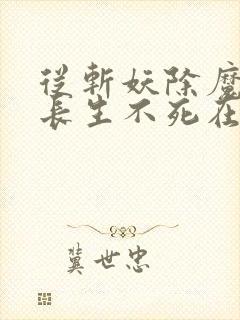 從斬妖除魔
長生不死在
冀世忠